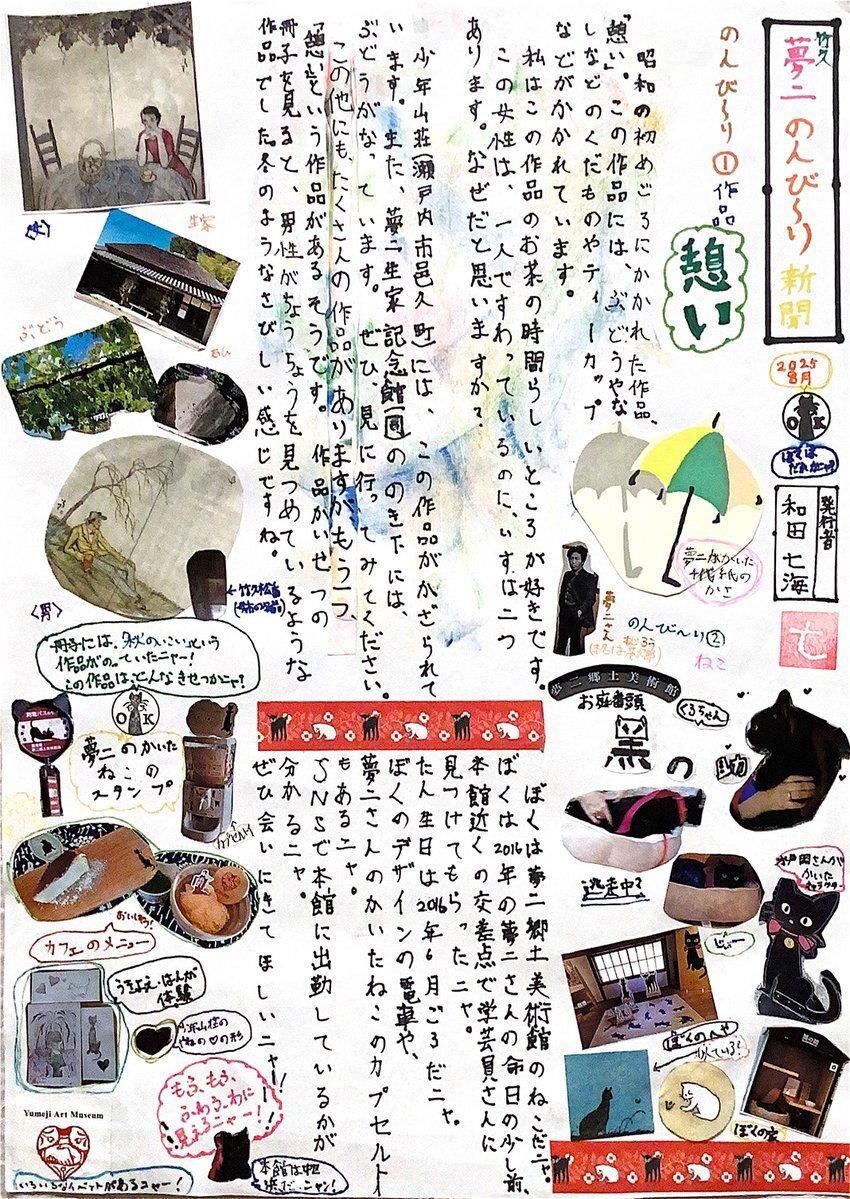 竹久
夢二のんび〜り新聞
2025
8月
OK
ぼくは
だれかニャ?
発行者
和田七海
七
のんび〜り①作品
憩い
昭和の初めごろにかかれた作品、
「憩い」。この作品には、ぶどうやな
しなどのくだものやティーカップ
などがかかれています。
私はこの作品のお茶の時間らしいところが好きです。
この女性は、一人ですわっているのに、いすは二つ
あります。なぜだと思いますか?
少年山荘(瀬戸内市邑久町)には、この作品がかざられて
います。また、夢二生家記念館(同)ののき下には、
ぶどうがなっています。ぜひ、見に行ってみてください。
この他にも、たくさんの作品がありますがもう一つ、
「憩い」という作品があるそうです。作品かいせつの
冊子を見ると、男性がちょうちょうを見つめているような
作品でした。冬のようなさびしい感じですね。
<女>
生家
ぶどう
<男>
冊子には、秋のいこいという
作品がのっていたニャー!
この作品はどんなきせつかニャ?
夢二がかいた
千代紙の
かさ
夢二さん
のんび〜り②
ねこ
夢二郷土美術館
お庭番頭
くろちゃん
黒の助
逃走中?
じぃー
ぼくのへや
似ている?
ぼくの家
ぼくは夢二郷土美術館のねこだニャ。
ぼくは2016年の夢二さんの命日の少し前、
本館近くの交差点で学芸員さんに
見つけてもらったニャ。
たん生日は2016年6月ごろだニャ。
ぼくのデザインの電車や、
夢二さんのかいたねこのカプセルト
もあるニャ。
SNSで本館に出勤しているかが
分かるニャ。
ぜひ会いにきてほしいニャー!
OK
夢二のかいた
ねこの
スタンプ
おいしそう!
カフェのメニュー
うきよえ・はんが
体験
少年山荘の
やねの♡の形
もふ、もふ、
ふわふわに
見えるニャー!
Yumeji Art Museum
いろいろなイベントがあるニャー!